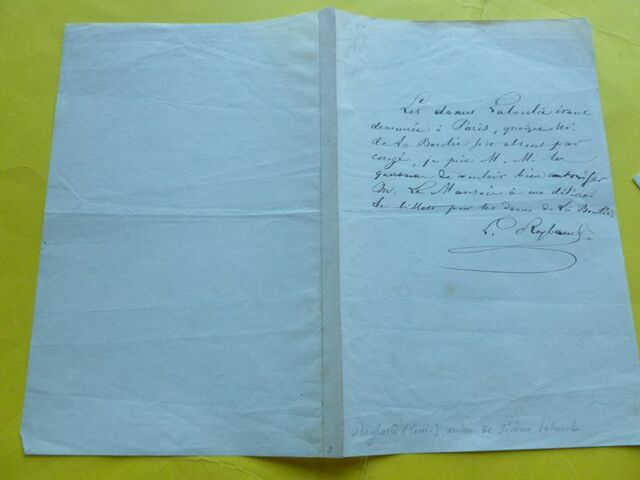 Les dames Laboulie étant
demeurée à Paris, quoique Mr.
de La Boulie soit absent par
congé, je prie M. M. les
questeurs de vouloir bien autoriser
Mr. Le Mansois à me délivrer
de billets pour les dames de La Boulie
L. Reybaud
Reybaud (Louis), auteur de Jérôme Paturot